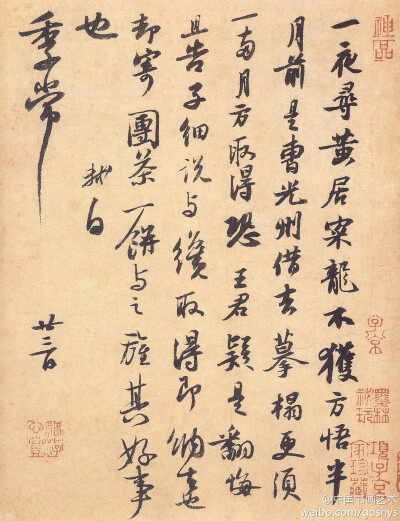 神品
一夜尋黃居寀龍不獲方悟半
月前是曹光州借去摹搨更須
一兩月方取得恐 王君疑是翻悔
且告子細說与纔取得即納去
却寄團茶一餅与之旌其好事
也
軾白
季常
廿三日
子京
墨林祕玩
項子京家珍藏
@中国书画艺术
weibo.com/gdshys